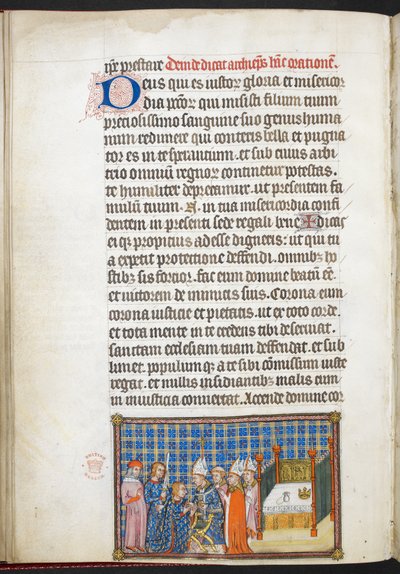 ipse prestare Deinde dicat archiep̄s hāc orationē.
Deus qui es iustoꝝ gloria et misericor
dia p̄ctōꝝ qui misisti filium tuum
preciosissimo sanguine suo genus huma
num redimere qui conteris bella et pugna
tor es in te sperantium. et sub cuius arbi
trio omniū regnoꝝ continetur potestas.
te humiliter deprecamur. ut presentem fa
mulū tuum. N. in tua misericordia confi
dentem in presenti sede regali bene✠dicas
ei qꝫ propitius adesse digneris: ut qui tu
a expetit protectione deffendi. omnibꝫ ho
stibꝫ sis fortior. fac eum domine beatū eē.
et uictorem de inimicis suis. Corona eum
corona iusticie et pietatis. ut ex toto corde.
et tota mente in te credens tibi deseruiat.
sanctam ecclesiam tuam deffendat. et sub
limet. populum qꝫ a te sibi cōmissum iuste
regat. et nullis insidiantibꝫ malis eum
in iniusticia conuertat. Accende domine cor
BRITISH
MUSEUM